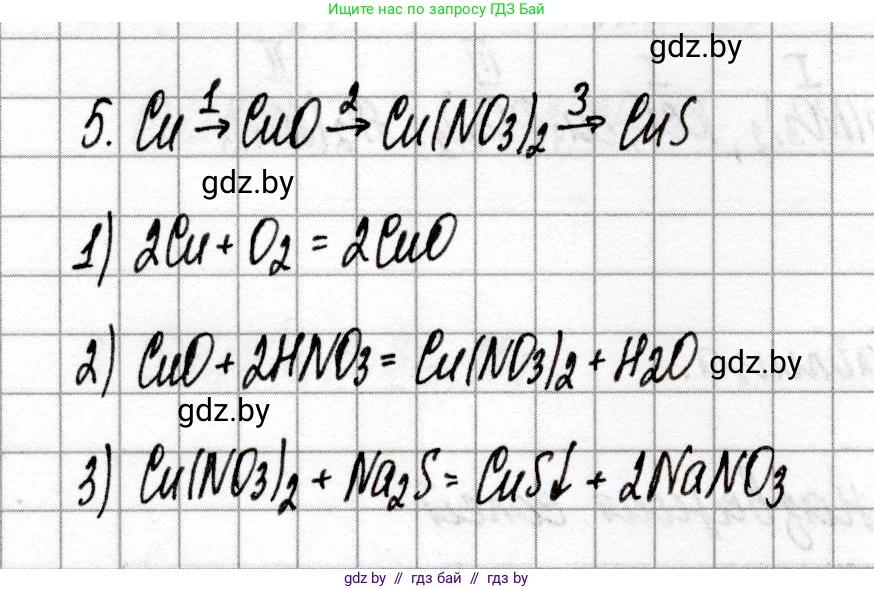 Ищите нас по запросу ГДЗ Бай
gdz.by
5. Cu 1→ CuO 2→ Cu(NO3)2 3→ CuS
gdz.by
1) 2Cu + O2 = 2CuO
2) CuO + 2HNO3 = Cu(NO3)2 + H2O gdz.by
gdz.by
3) Cu(NO3)2 + Na2S = CuS↓ + 2NaNO3
gdz.by // гдз бай // гдз by